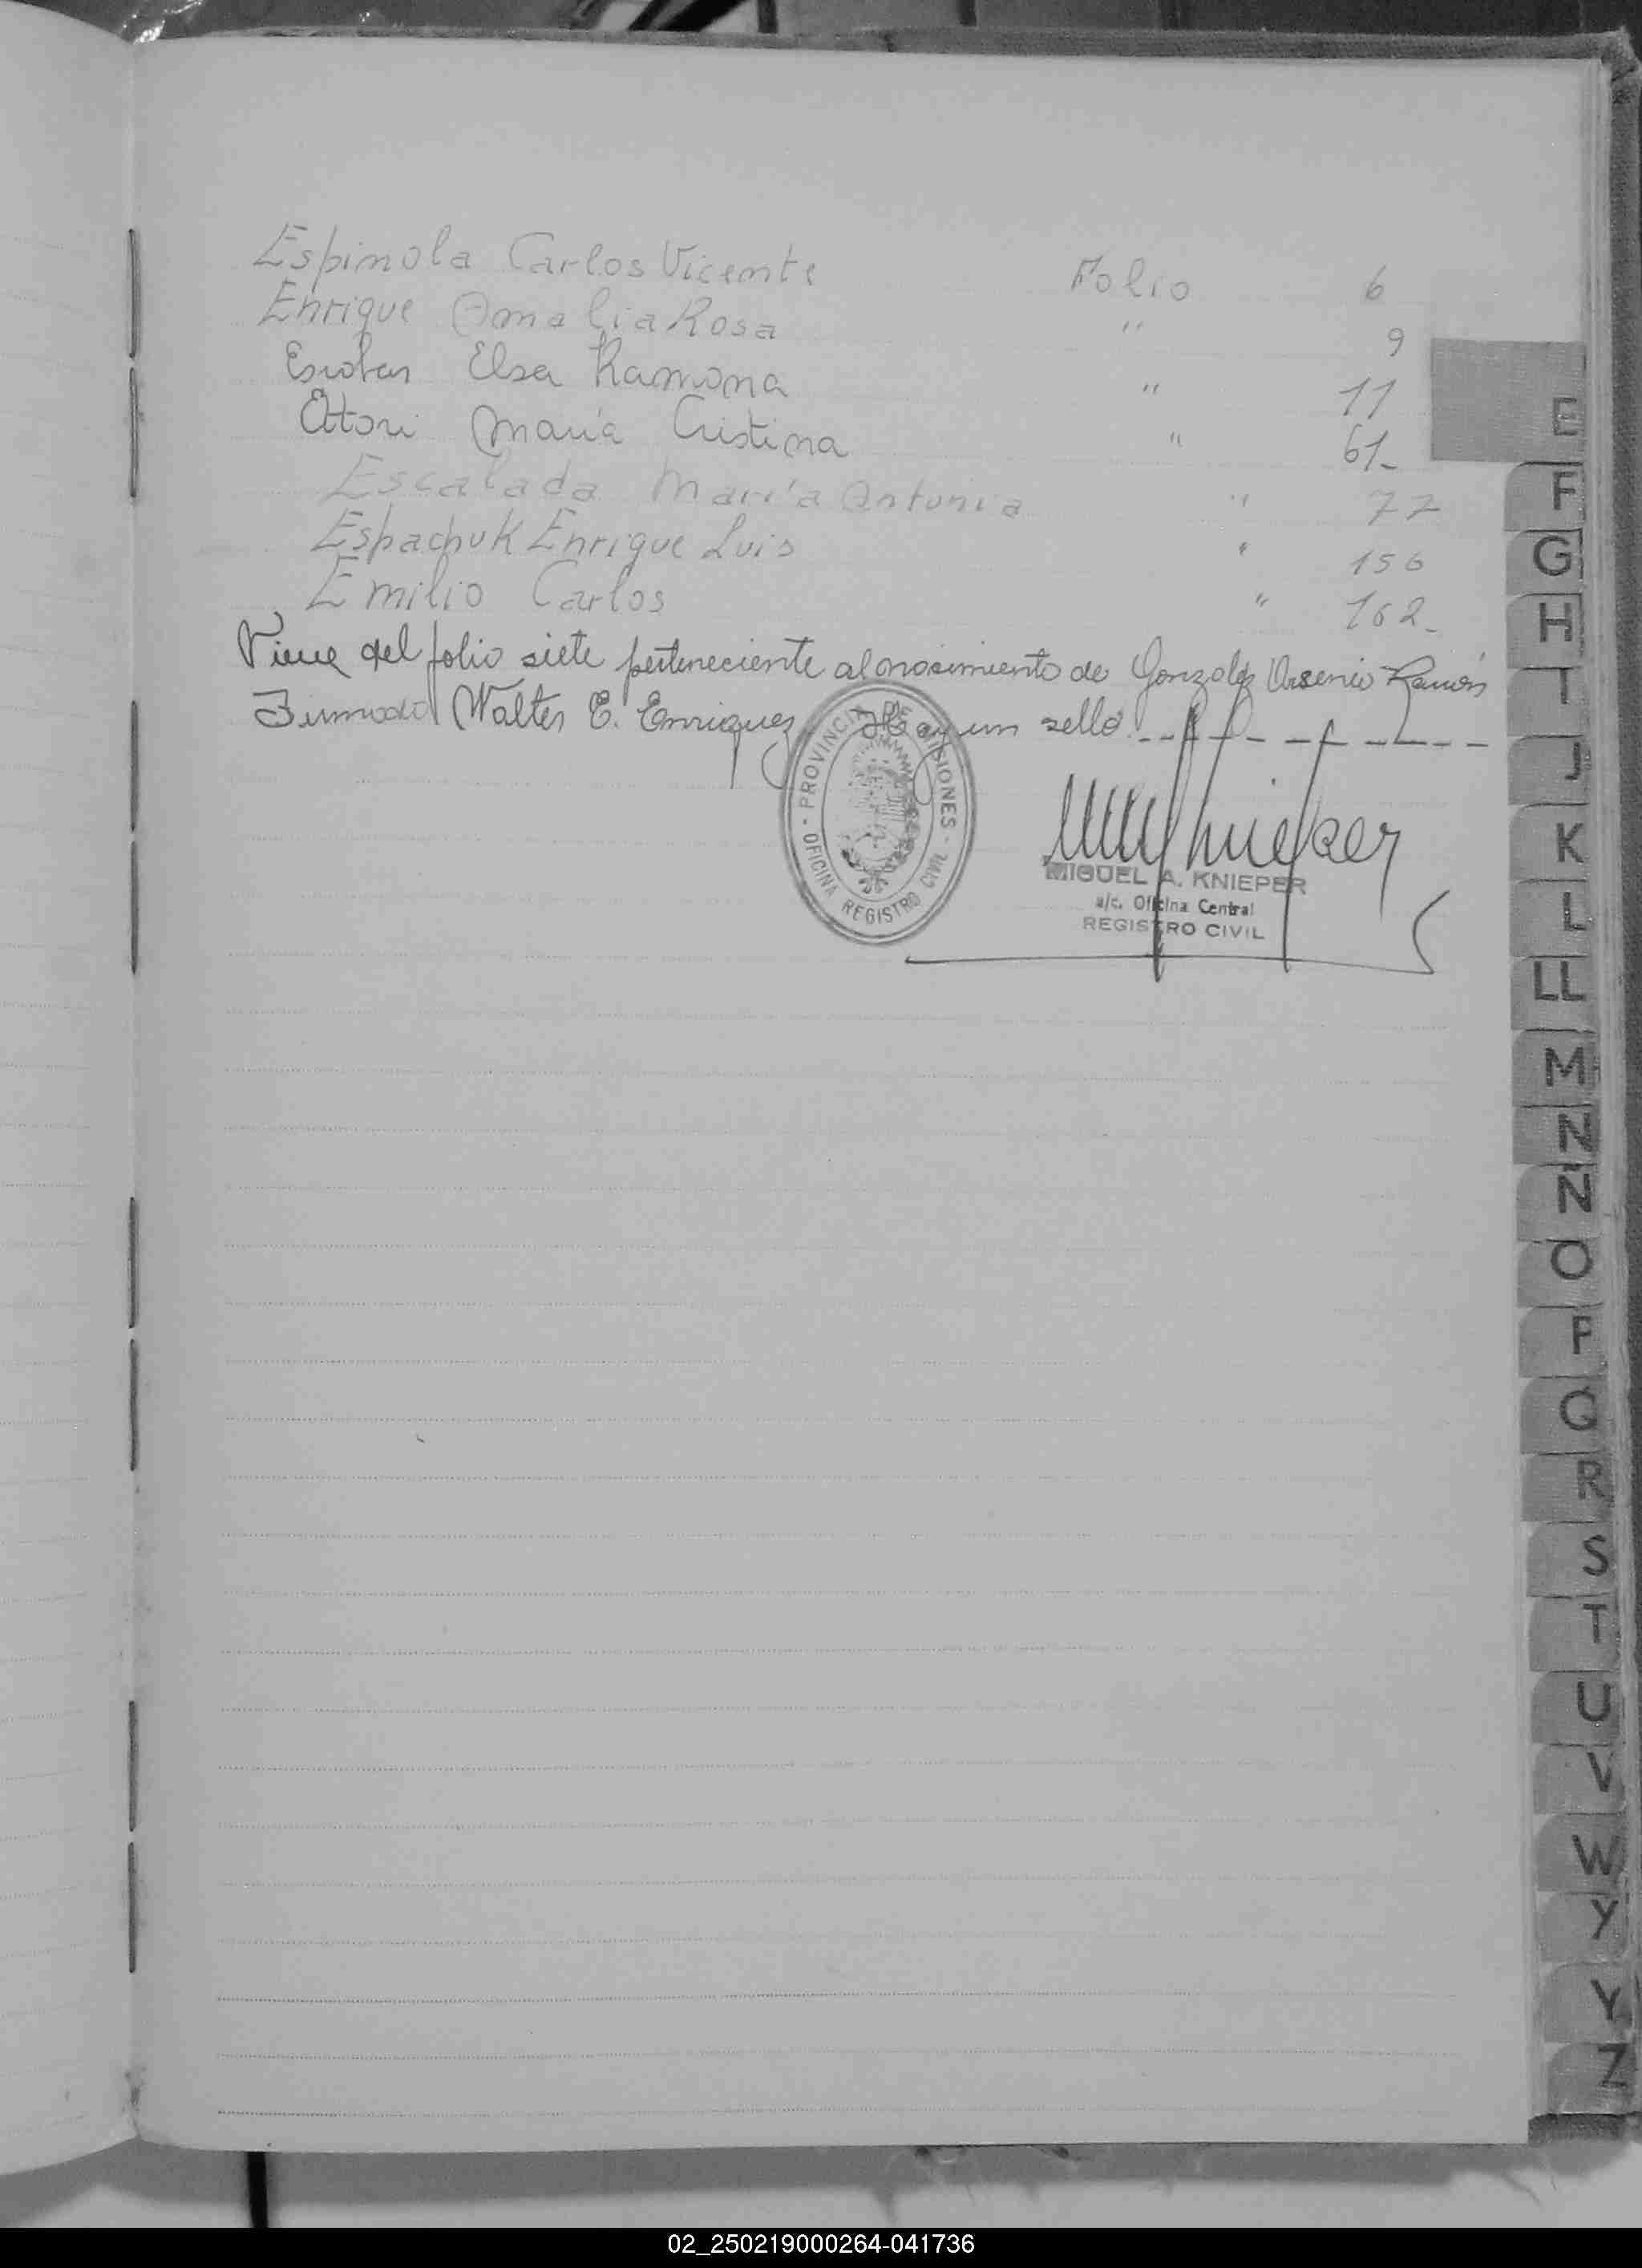 Espinola Carlos Vicente Folio 6
Enrique Amalia Rosa " 9
Escobar Elsa Ramona " 11
Ettori María Cristina " 61-
Escalada María Antonia " 77
Espachuk Enrique Luis " 156
Emilio Carlos " 162-
Viene del folio siete perteneciente al nacimiento de Gonzalez Arsenio Ramón
Firmado Walter E. Enriquez Hay un sello
- PROVINCIA DE MISIONES -
OFICINA REGISTRO CIVIL
MIGUEL A. KNIEPER
a/c. Oficina Central
REGISTRO CIVIL
E
F
G
H
I
J
K
L
LL
M
N
Ñ
O
P
Q
R
S
T
U
V
W
Y
Y
Z
02_250219000264-041736